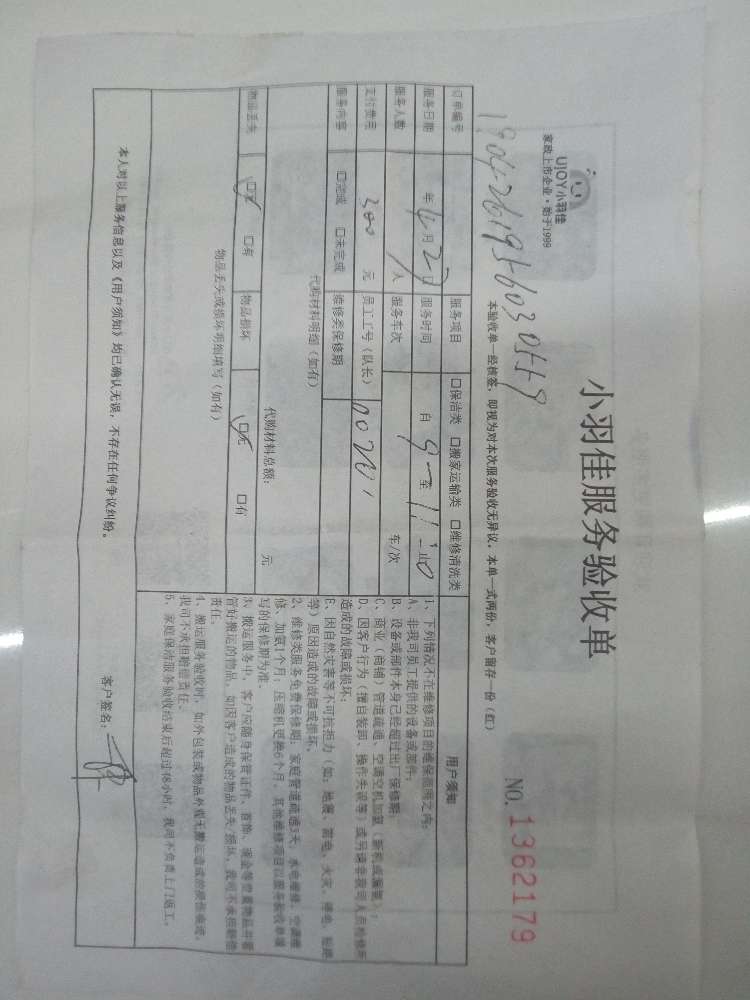 UJOY小羽佳
家政上市企业·始于1999
小羽佳服务验收单
NO.1362179
本验收单一经核签，即视为对本次服务验收无异议，本单一式两份，客户留存一份（红）
订单编号
服务项目 □保洁类 □搬家运输类 □维修清洗类
服务日期 年 4月27日 服务时间 自 9 至 11 止
服务人数 人 服务车次 车/次
支付费用 300 元 员工工号（队长）
服务内容 □完成 □未完成 维修类保修期
代购材料明细（如有）
代购材料总额： 元
物品丢失 □无 □有 物品损坏 □无 □有
物品丢失或损坏明细填写（如有）
用户须知
1、下列情况不在维修项目的维保范围之内：
A、非我司员工提供的设备或部件；
B、设备或部件本身已经超过出厂保修期；
C、商业（商铺）管道疏通、空调空机加氨（新机或漏氨）；
D、因客户行为（擅自装卸、操作失误等）或另请非我司人员检修所
造成的故障或损坏；
E、因自然灾害等不可抗拒力（如：地震、雷电、火灾、停电、短路
等）原因造成的故障或损坏。
2、维修类服务免费保修期：家庭管道疏通3天，水电维修、空调维
修、加氨1个月，压缩机更换6个月，其他维修项目以服务验收单填
写的保修期为准。
3、搬运服务中，客户应随身保管证件、首饰、现金等贵重物品并看
管好搬运的物品，如因客户造成的物品丢失/损坏，我司不承担赔偿
责任。
4、搬运服务验收时，如外包装或物品外观无搬运造成的损伤痕迹，
我司不承担赔偿责任。
5、家庭保洁服务验收结束后超过48小时，我司不负责上门返工。
本人对以上服务信息以及《用户须知》均已确认无误，不存在任何争议纠纷。
客户签名：